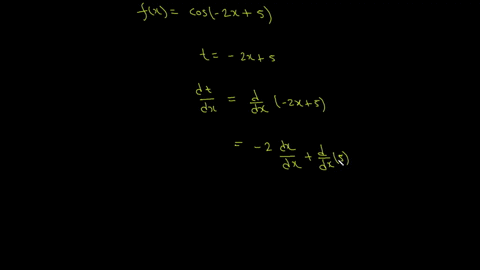 f(x) = cos(-2x+5)
t = -2x+5
dt/dx = d/dx (-2x+5)
= -2 dx/dx + d/dx (5)